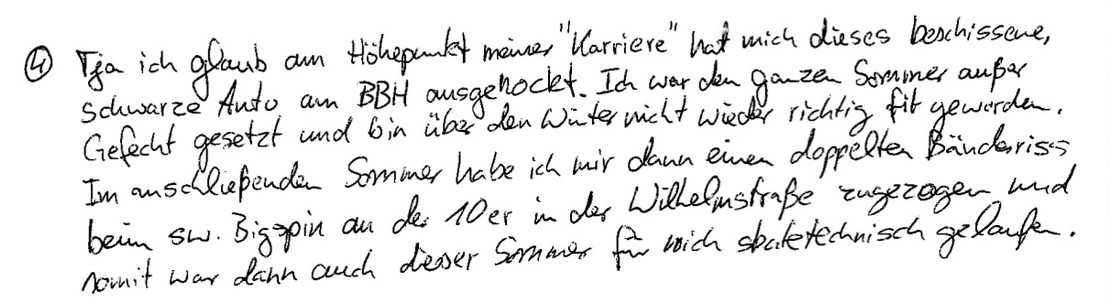 ④ Tja ich glaub am Höhepunkt meiner "Karriere" hat mich dieses beschissene,
schwarze Auto am BBH ausgenockt. Ich war den ganzen Sommer außer
Gefecht gesetzt und bin über den Winter nicht wieder richtig fit geworden.
Im anschließenden Sommer habe ich mir dann einen doppelten Bänderriss
beim sw. Bigspin an der 10er in der Wilhelmstraße zugezogen und
somit war dann auch dieser Sommer für mich skatetechnisch gelaufen.